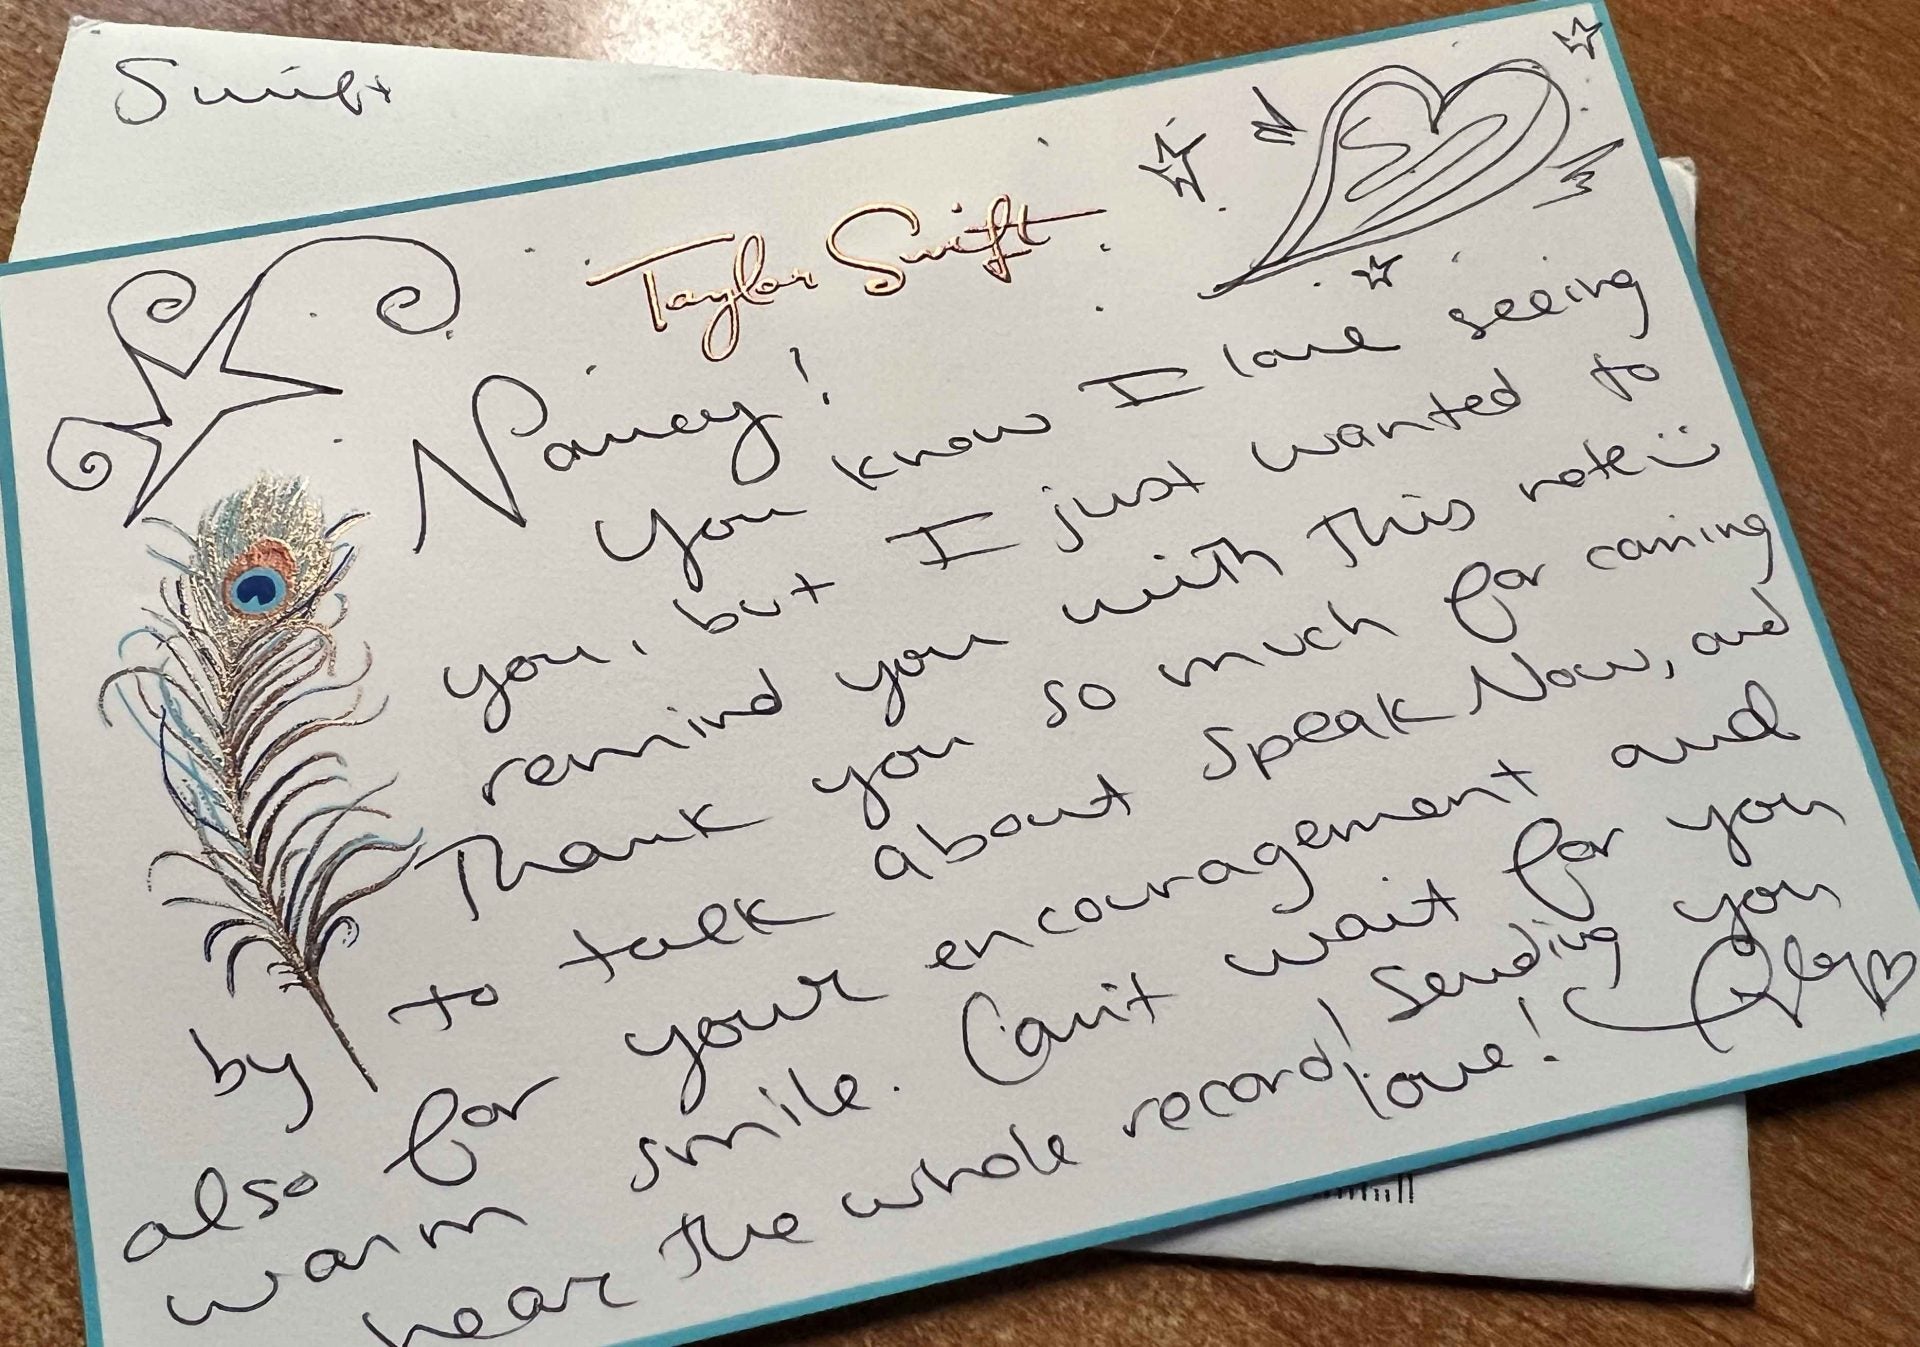 Swift
Taylor Swift
Nancy!
You know I love seeing
you, but I just wanted to
remind you with this note :)
Thank you so much for coming
by to talk about Speak Now, and
also for your encouragement and
warm smile. Can't wait for you
hear the whole record! Sending you
love!